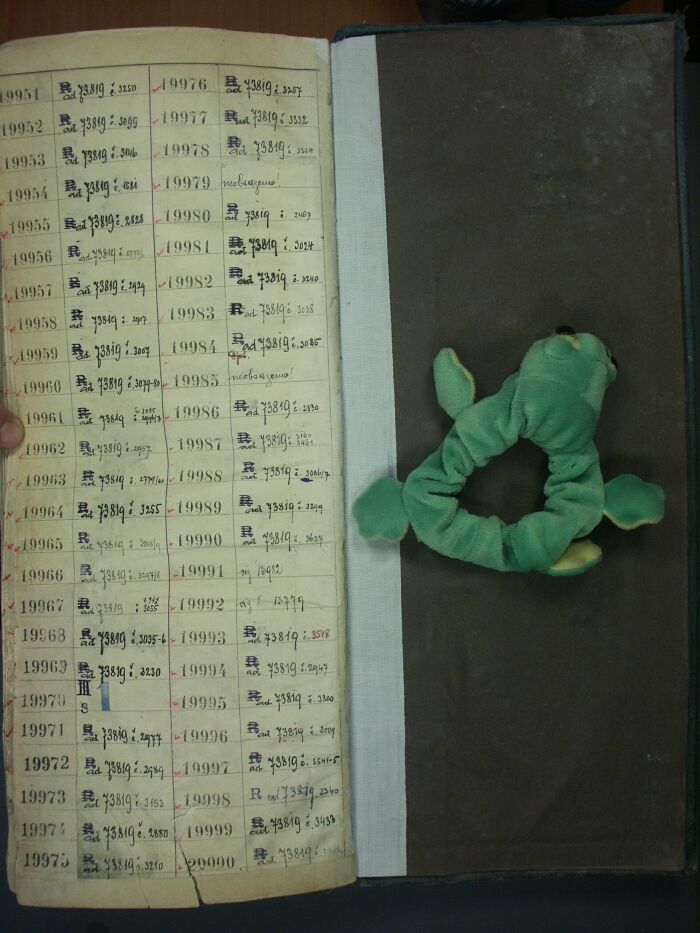 19951 R ad 73819 č. 3250
19952 R ad 73819 č. 3099
19953 R ad 73819 č. 3146
19954 R ad 73819 č. 1581
19955 R ad 73819 č. 2828
19956 R ad 73819 č.
19957 R ad 73819 č. 2929
19958 R ad 73819 č. 2907
19959 R ad 73819 č. 3007
19960 R ad 73819 č. 3079-80
19961 R ad 73819 č.
19962 R ad 73819 č. 2957
19963 R ad 73819 č.
19964 R ad 73819 č. 3255
19965 R ad 73819 č.
19966 R ad 73819 č. 3297/8
19967 R ad 73819 č. 3055
19968 R ad 73819 č. 3035-6
19969 R ad 73819 č. 3230
19970 III S
19971 R ad 73819 č. 2977
19972 R ad 73819 č. 2989
19973 R ad 73819 č. 3153
19974 R ad 73819 č. 2880
19975 R ad 73819 č. 3210
19976 R ad 73819 č. 3257
19977 R ad 73819 č. 3332
19978 R ad 73819 č. 3324
19979 neobsazeno!
19980 R ad 73819 č. 2467
19981 R ad 73819 č. 3024
19982 R ad 73819 č. 3240
19983 R ad 73819 č. 3038
19984 R ad 73819 č. 3085
19985 neobsazeno!
19986 R ad 73819 č. 2330
19987 R ad 73819 č. 3160
19988 R ad 73819 č. 3086/7
19989 R ad 73819 č. 3299
19990 R ad 73819 č. 3637
19991 viz 13982
19992 viz č 13779
19993 R ad 73819 č. 3518
19994 R ad 73819 č. 2947
19995 R ad 73819 č. 3300
19996 R ad 73819 č. 3009
19997 R ad 73819 č. 3541-5
19998 R ad 73819 2340
19999 R ad 73819 č. 3433
20000. R ad 73819 č.